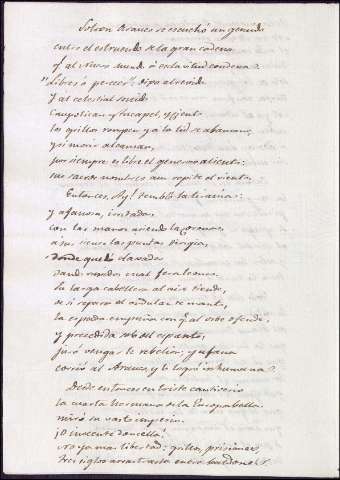 Sobre Arauco se escuchó un gemido
entre el estruendo de la gran cadena
qe al Nuevo Mundo á esclavitud condena.
"Libres ó perecer", dijo al
y al celestial
Caupolican y Tucapel,
los grillos rompen y a la lid se abanzan,
y si morir alcanzan,
por siempre es libre el generoso aliento:
sus sacros nombres aun repite el viento.
Entonces, Ay! tembló la tirania:
y afanosa, irritada,
con las manos asiendo la corona,
a sus sienes las puntas dirigia,
donde quedó clavada
dando miradas cual feroz leona.
Su larga cabellera al aire tiende,
de si repara el ondular de manto,
la espada empuña con qe al orbe ofende;
y precedida solo del espanto,
juró vengar la rebelion; y ufana
corrió al Arauco, y lo logró inhumana.
Desde entonces en triste cautiverio
la cuarta hermana de la Europa bella
miró su vasto imperio.
¡O inocente doncella!
no ya mas libertad: grillos, prisiones,
tres siglos arrastraste entre baldones.